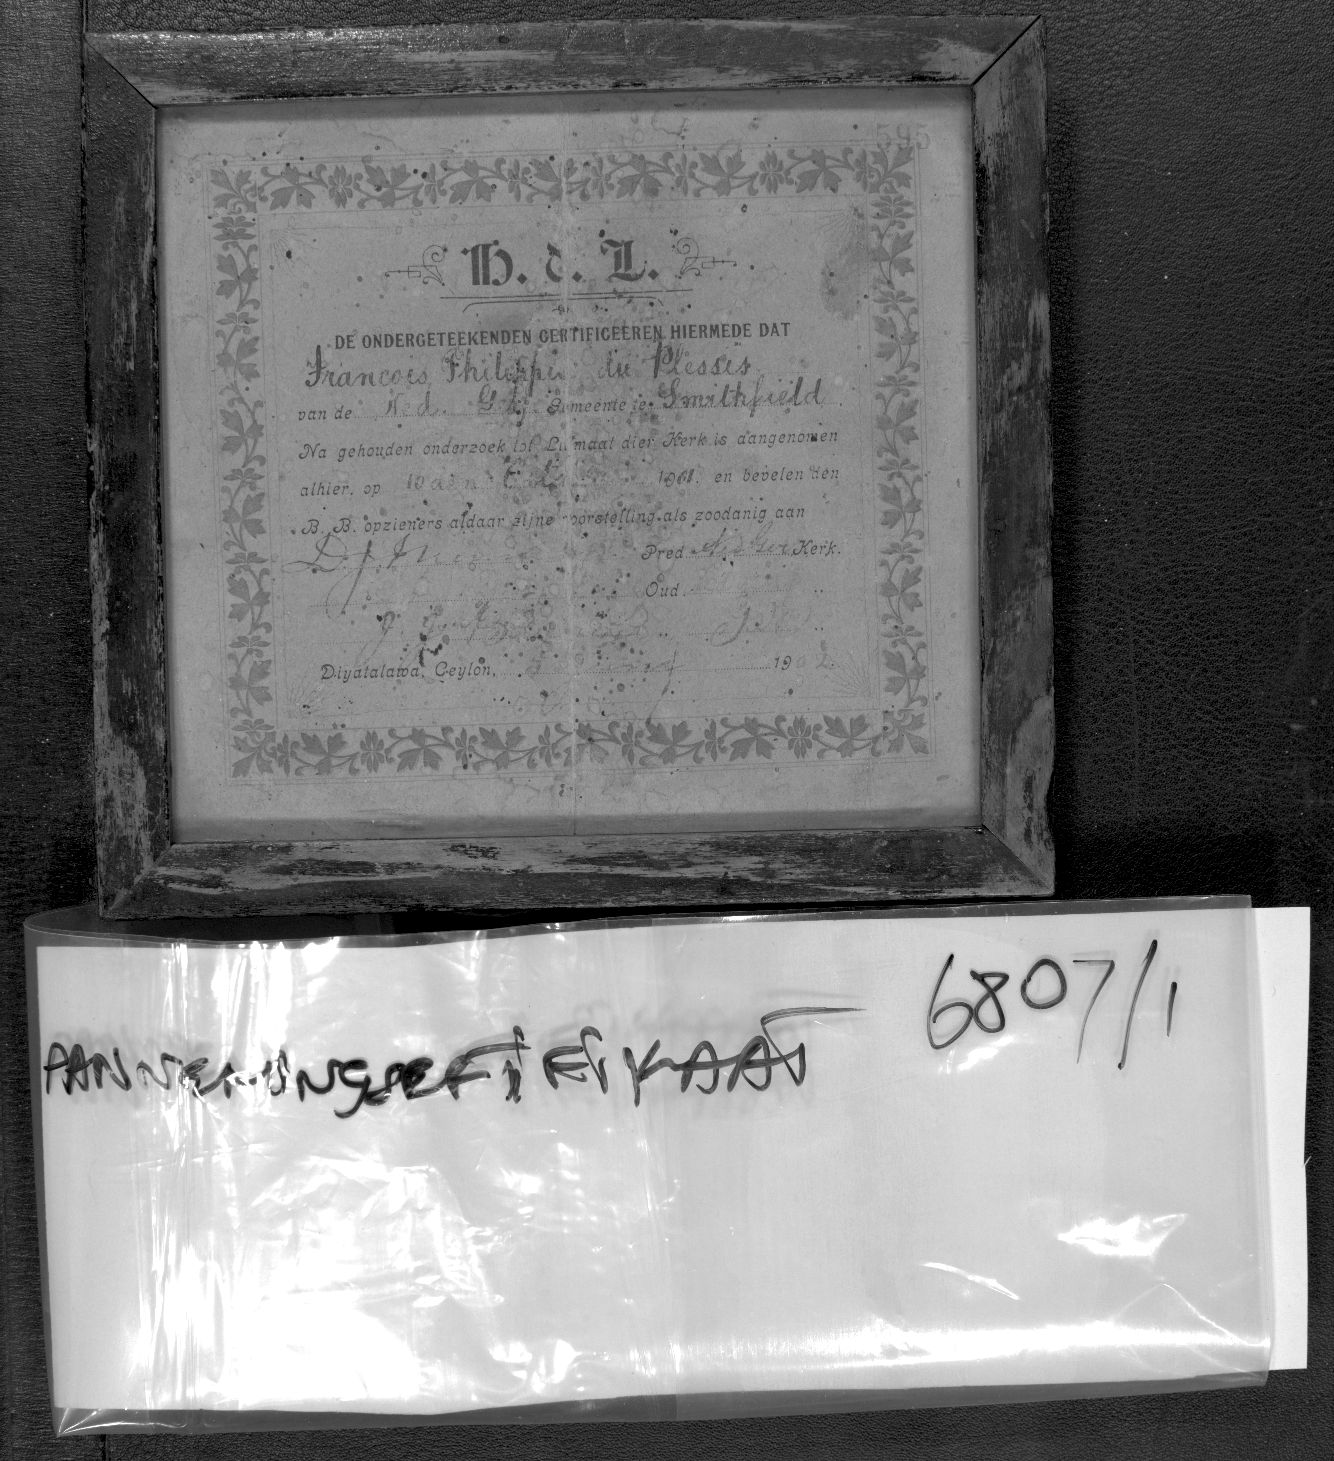 595
H. d. L.
DE ONDERGETEEKENDEN CERTIFICEEREN HIERMEDE DAT
Francois Philippe du Plessis
van de Ned. Gemeente te Smithfield
Na gehouden onderzoek tot Lidmaat dier Kerk is aangenomen
alhier, op 10 den 1901, en bevelen den
B. B. opzieners aldaar zijne voorstelling als zoodanig aan
D. J. Pred Kerk.
Oud.
J.
Diyatalawa, Ceylon, 1902
6807/1
AANNEMINGSERTIFIKAAT